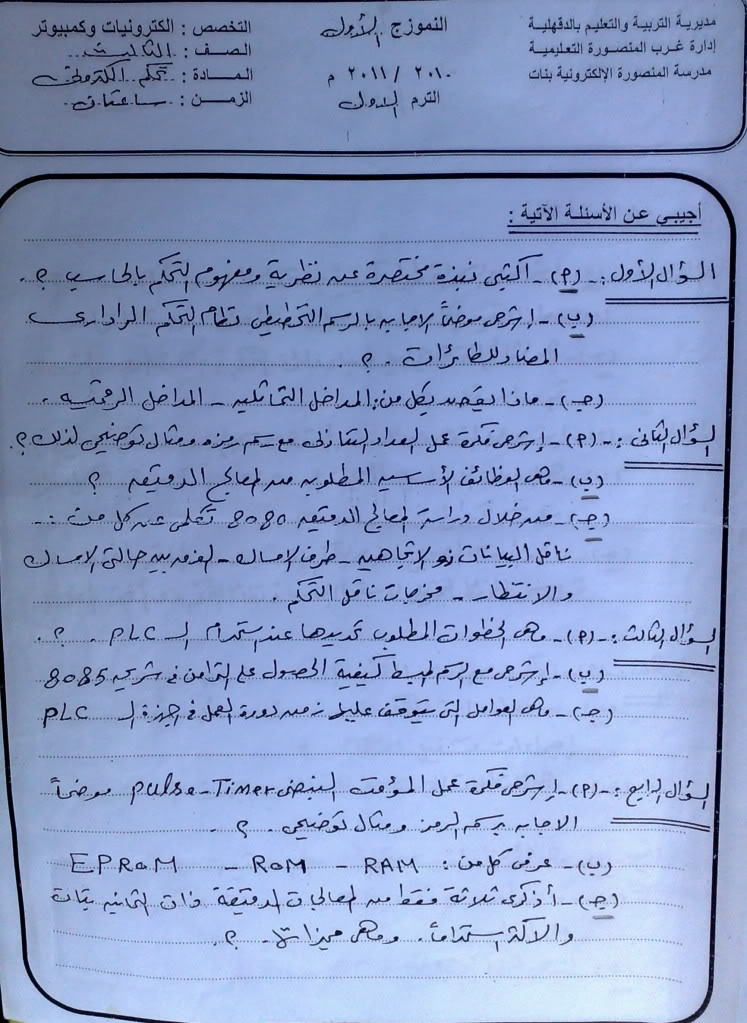 مديرية التربية والتعليم بالدقهلية
إدارة غرب المنصورة التعليمية
مدرسة المنصورة الإلكترونية بنات
النموزج الأول
٢٠١٠ / ٢٠١١ م
الترم الاول
التخصص : الكترونيات وكمبيوتر
الصف : الثالث
المادة : تحكم الكترونى
الزمن : ساعتان
أجيبي عن الأسئلة الآتية :
السؤال الأول :- (أ) - أكتبى نبذة مختصرة عن نظرية ومفهوم التحكم بالحاسب ؟.
(ب) - إشرحى موضحاً الاجابه بالرسم التخطيطى نظام التحكم الرادارى
المضاد للطائرات . ؟.
(جـ) - ماذا يقصد بكل من : المداخل التماثليه - المداخل الرقميه .
السؤال الثانى :- (أ) - إشرحى فكرة عمل العداد التنازلى مع رسم رمزه ومثال توضيحى لذلك ؟.
(ب) - ماهى الوظائف الأساسيه المطلوبه من المعالج الدقيقه ؟
(جـ) - من خلال دراسة المعالج الدقيقه 8085 تكلمى عن كل من :-
ناقل البيانات ذو الاتجاهين - طرف الامساك - الفرق بين حالتى الامساك
والانتظار - مخرجات ناقل التحكم .
السؤال الثالث :- (أ) - ماهى الخطوات المطلوب تحديدها عند استخدام الـ PLC . ؟.
(ب) - إشرحى مع الرسم المبسط كيفية الحصول على التزامن فى شريحه 8085
(جـ) - ماهى العوامل التى يتوقف عليها زمن دورة العمل فى اجهزة الـ PLC
السؤال الرابع :- (أ) - إشرحى فكرة عمل المؤقت النبضى Pulse-Timer موضحاً
الاجابه برسم الرمز ومثال توضيحى . ؟.
(ب) - عرفى كل من : RAM - ROM - EPROM
(جـ) - أذكرى ثلاثة فقط من المعالجات الدقيقة ذات الثمانيه بتات
والاكثر استخداماً . وماهى ميزاتها . ؟.